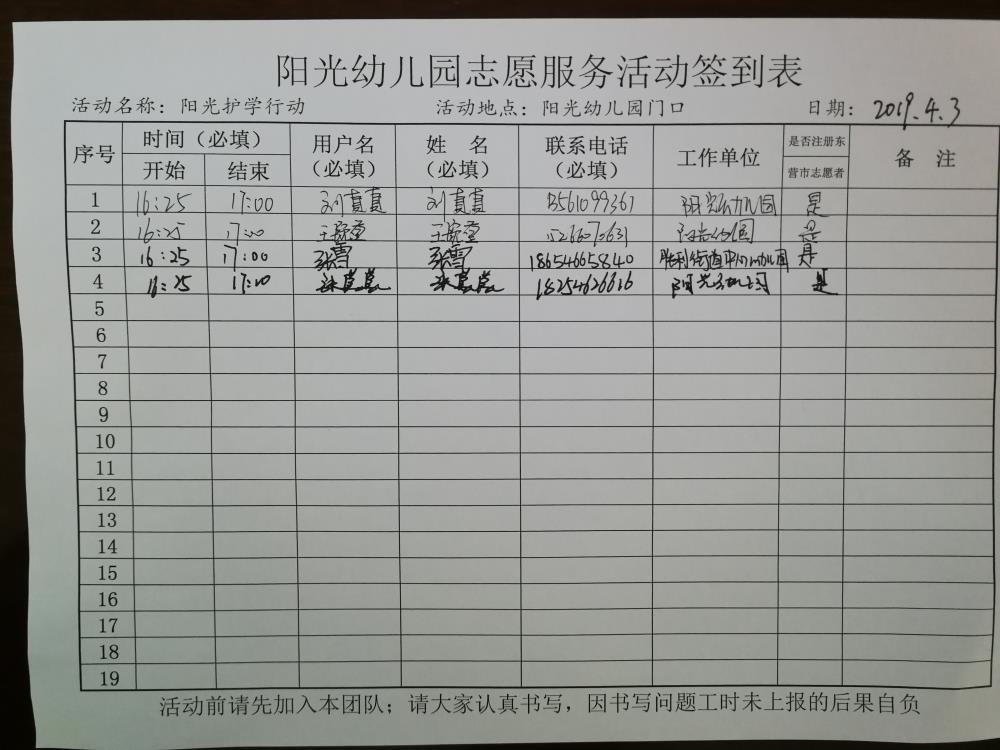 阳光幼儿园志愿服务活动签到表
活动名称：阳光护学行动 活动地点：阳光幼儿园门口 日期：2019.4.3
序号 时间（必填） 用户名（必填） 姓名（必填） 联系电话（必填） 工作单位 是否注册东营市志愿者 备注
开始 结束
1 16:25 17:00 刘真真 刘真真 13561099361 阳光幼儿园 是
2 16:25 17:00 王 王 阳光幼儿园 是
3 16:25 17:00 张雪 张雪 18654665840 胜利街道中心幼儿园 是
4 16:25 17:00 18254626616 阳光幼儿园 是
5
6
7
8
9
10
11
12
13
14
15
16
17
18
19
活动前请先加入本团队；请大家认真书写，因书写问题工时未上报的后果自负